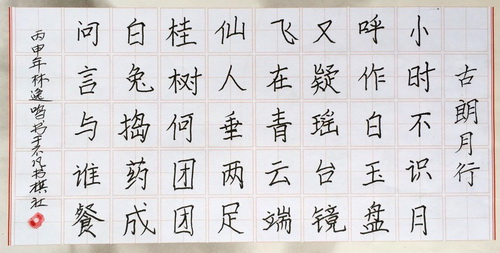 古朗月行
小时不识月
呼作白玉盘
又疑瑶台镜
飞在青云端
仙人垂两足
桂树何团团
白兔捣药成
问言与谁餐
丙申年林逸鸣书于不凡书棋社